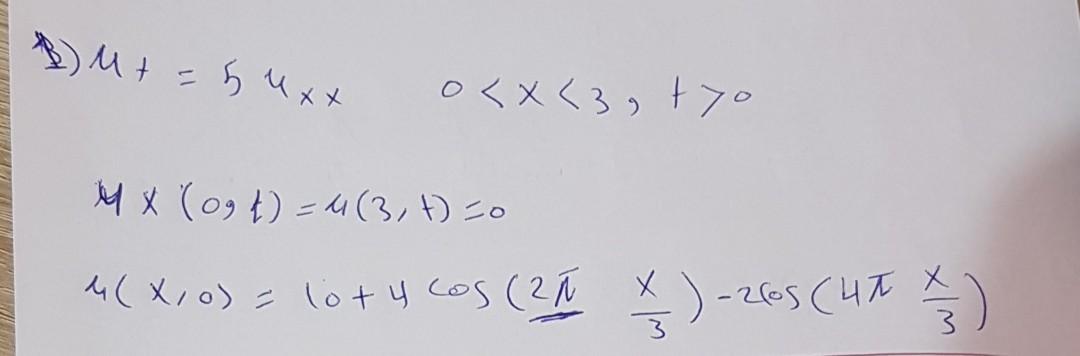 B) ut = 5 uxx 0 < x < 3, t > 0
ux (0, t) = u(3, t) = 0
u(x, 0) = 10 + 4 cos(2π x/3) - 2cos(4π x/3)